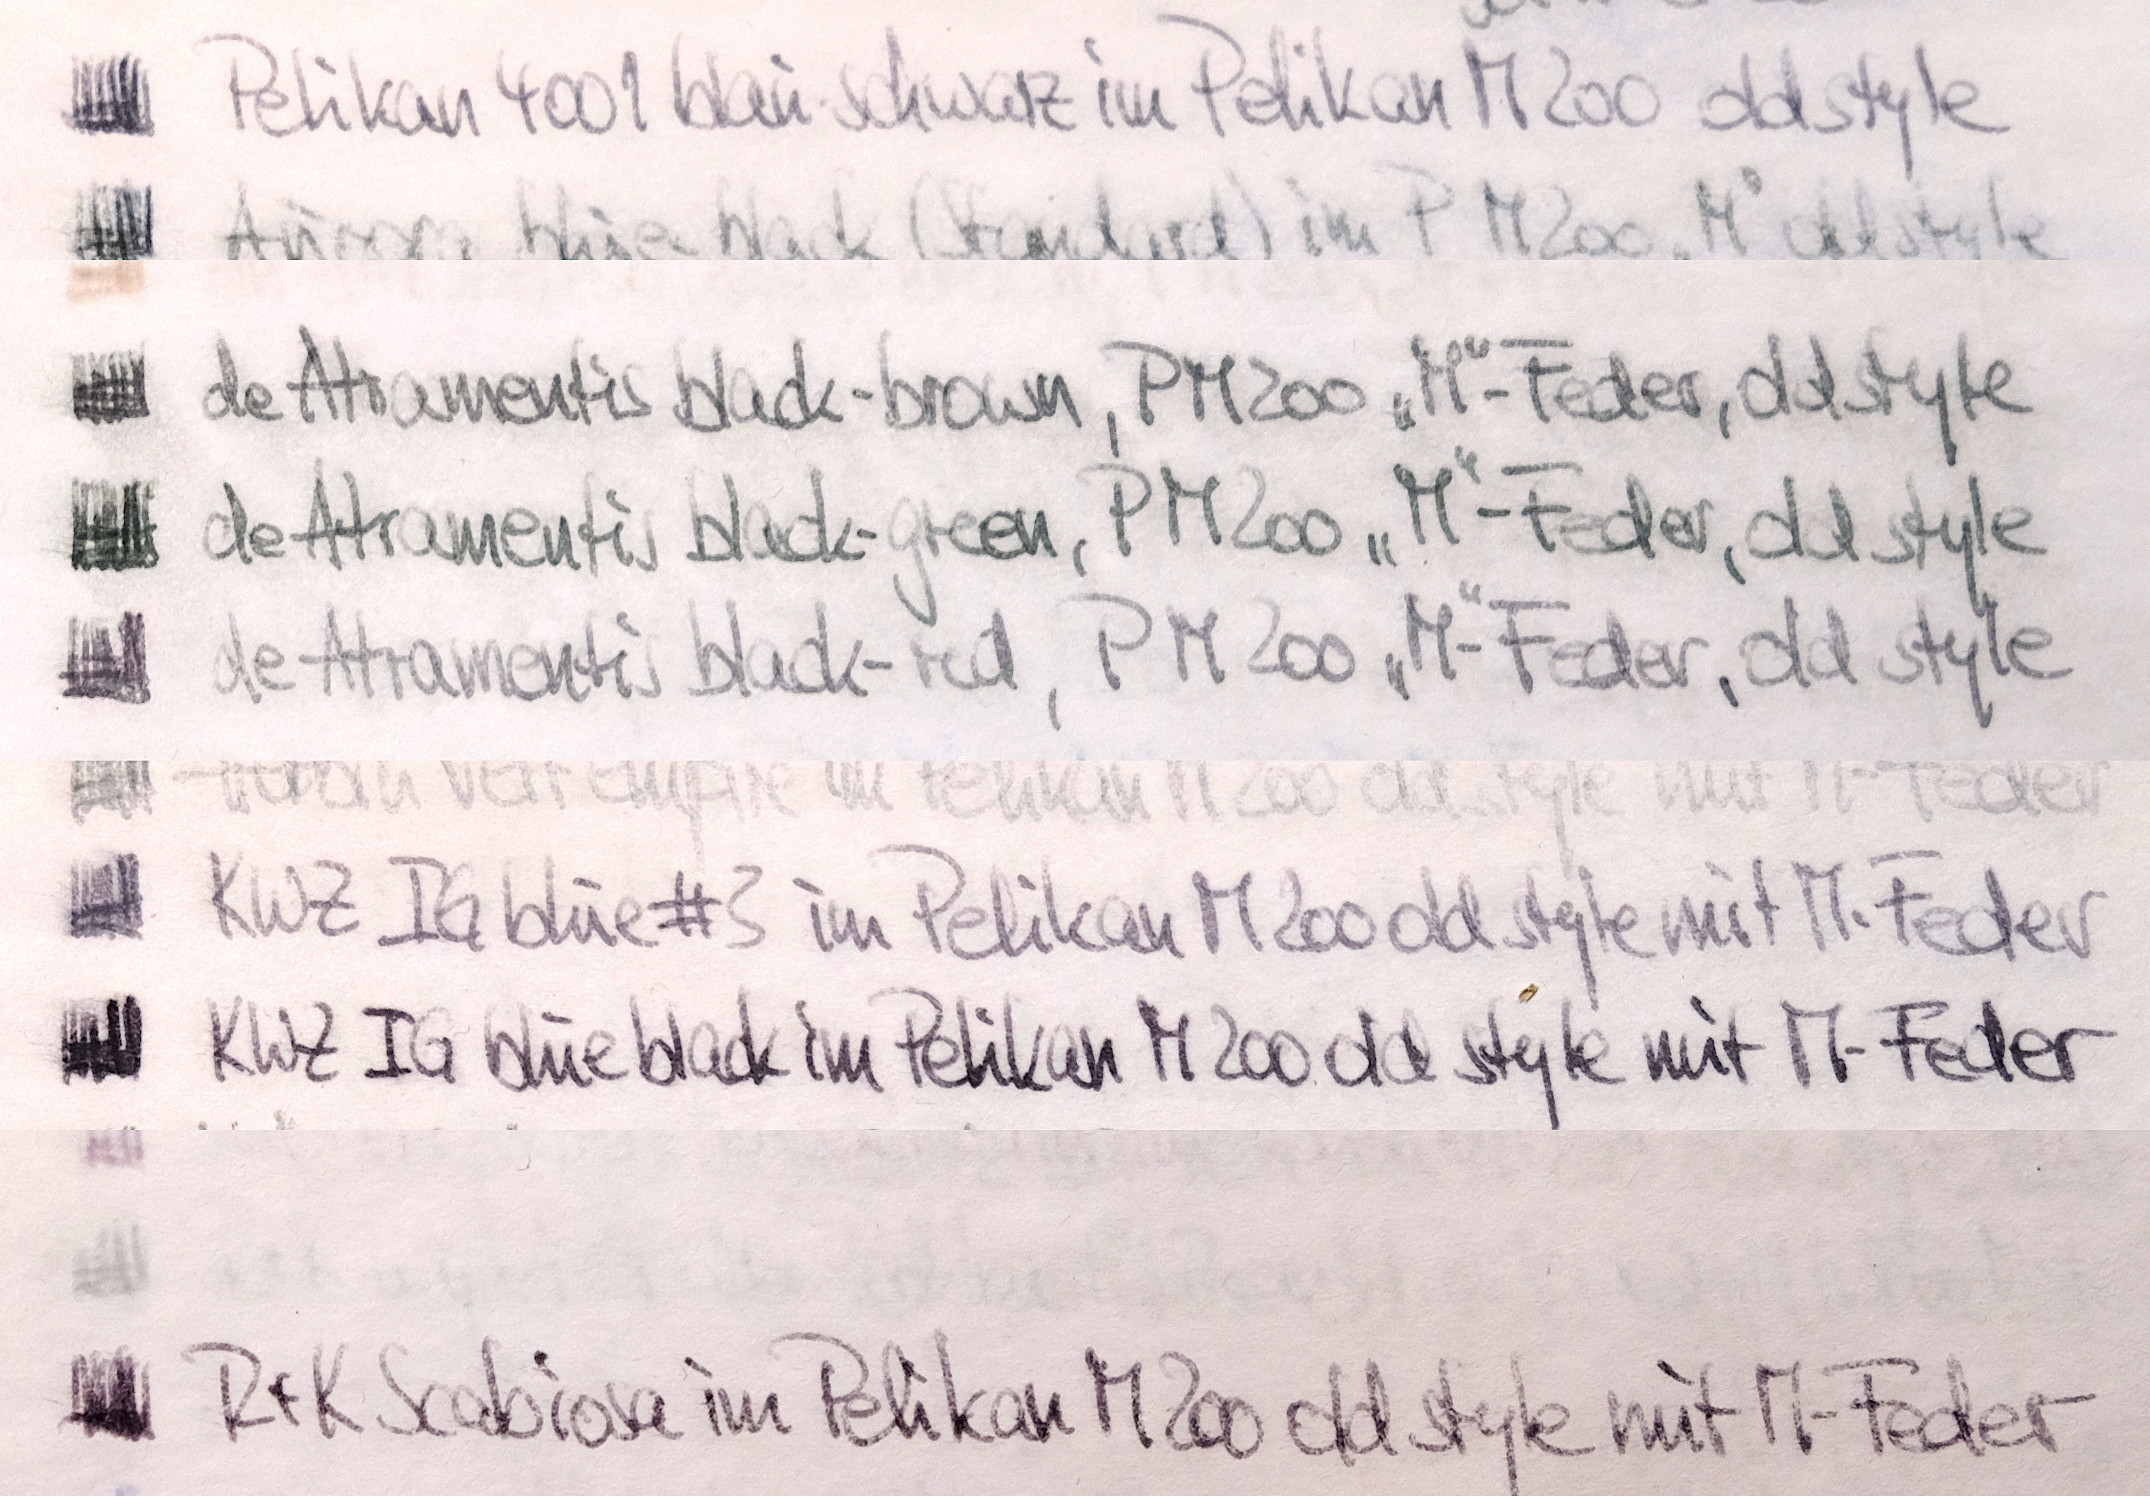 Pelikan 4001 blau-schwarz im Pelikan M200 old style
Aurora blue black (Standard) im P M200 „M" old style
de Atramentis black-brown, PM200 „M"-Feder, old style
de Atramentis black-green, PM200 „M"-Feder, old style
de Atramentis black-red, PM200 „M"-Feder, old style
vert empire im Pelikan M200 old style mit M-Feder
KWZ IG blue #3 im Pelikan M200 old style mit M-Feder
KWZ IG blue black im Pelikan M200 old style mit M-Feder
R+K Scabiosa im Pelikan M200 old style mit M-Feder